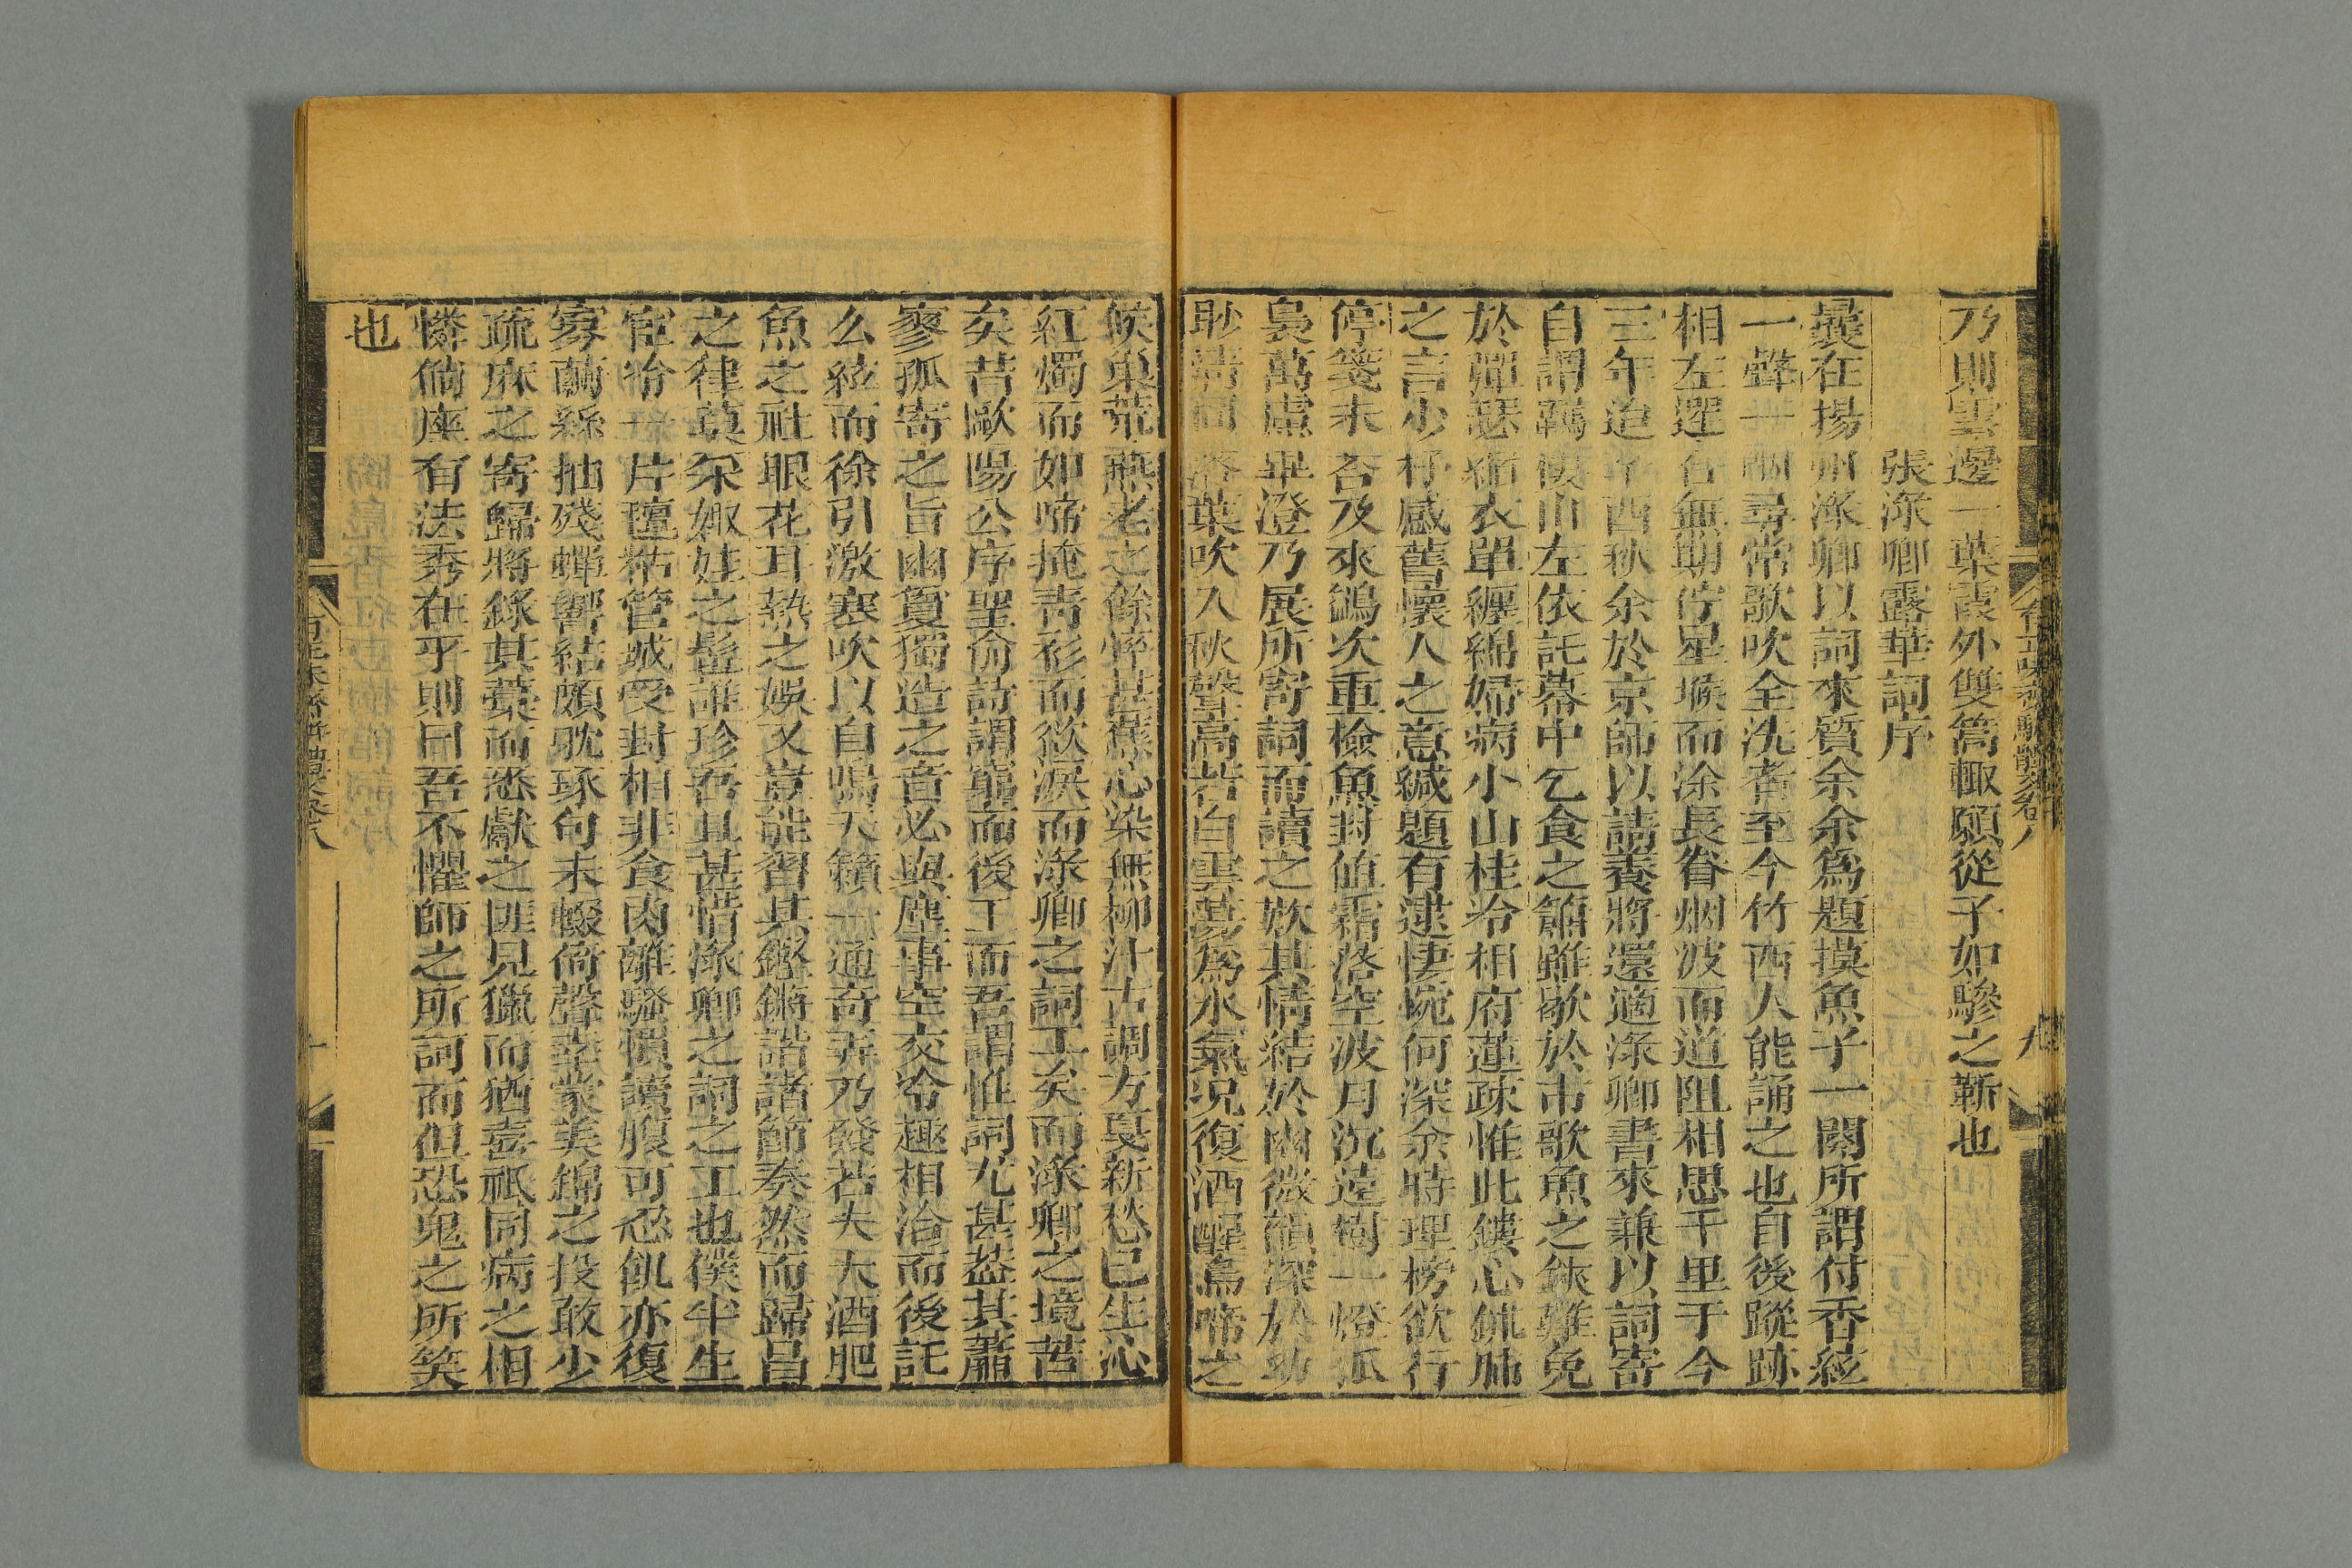 乃則雲邊一葉霞外雙篙輙願從子如驂之靳也
張淥卿露華詞序
曩在揚州淥卿以詞來質余余爲題摸魚子一闋所謂付香絃
一聲一咽尋常歌吹全洗者至今竹西人能誦之也自後蹤跡
相左遝合無期停星堠而涂長眷烟波而道阻相思千里于今
三年迨辛酉秋余於京師以請養將還適淥卿書來兼以詞寄
自謂羈棲山左依託幕中乞食之簫雖歇於市歌魚之鋏難免
於彈瑟縮衣單纏綿婦病小山桂冷相府蓮疎惟此鏤心鉥肺
之言少抒感舊懷人之意緘題有逮悽惋何深余時理榜欲行
停箋未荅及來鷁次重檢魚封値霜落空波月沉遠樹一燈孤
裊萬慮畢澄乃展所寄詞而讀之歎其情結於幽微韻深於幼
眇清商落葉吹入秋聲高若白雲蕩爲水氣況復酒醒烏啼之
候巢荒燕老之餘悴甚蕉心染無柳汁古調方戛新愁已生沁
紅燭而如啼掩靑衫而欲淚而淥卿之詞工矣而淥卿之境苦
矣昔歐陽公序聖俞詩謂窮而後工而吾謂惟詞尤甚葢其蕭
寥孤寄之旨幽敻獨造之音必與塵事空交冷趣相洽而後託
么絃而徐引激寒吹以自鳴天籟一通奇弄乃發若夫大酒肥
魚之社眼花耳熱之娛又豈能習其鏗鏘諧諸節奏然而歸昌
之律莫采娵娃之髢誰珍吾且甚惜淥卿之詞之工也僕半生
宦冷一片氊粘管城受封相非食肉離騷慣讀腹可忍飢亦復
寡繭絲抽殘蟬響結頗耽琢句未輟倚聲幸蒙美錦之投敢少
疏麻之寄歸將錄其藁而悉獻之匪見獵而猶喜祇同病之相
憐倘座有法秀在乎則曰吾不懼師之所訶而但恐鬼之所笑
也